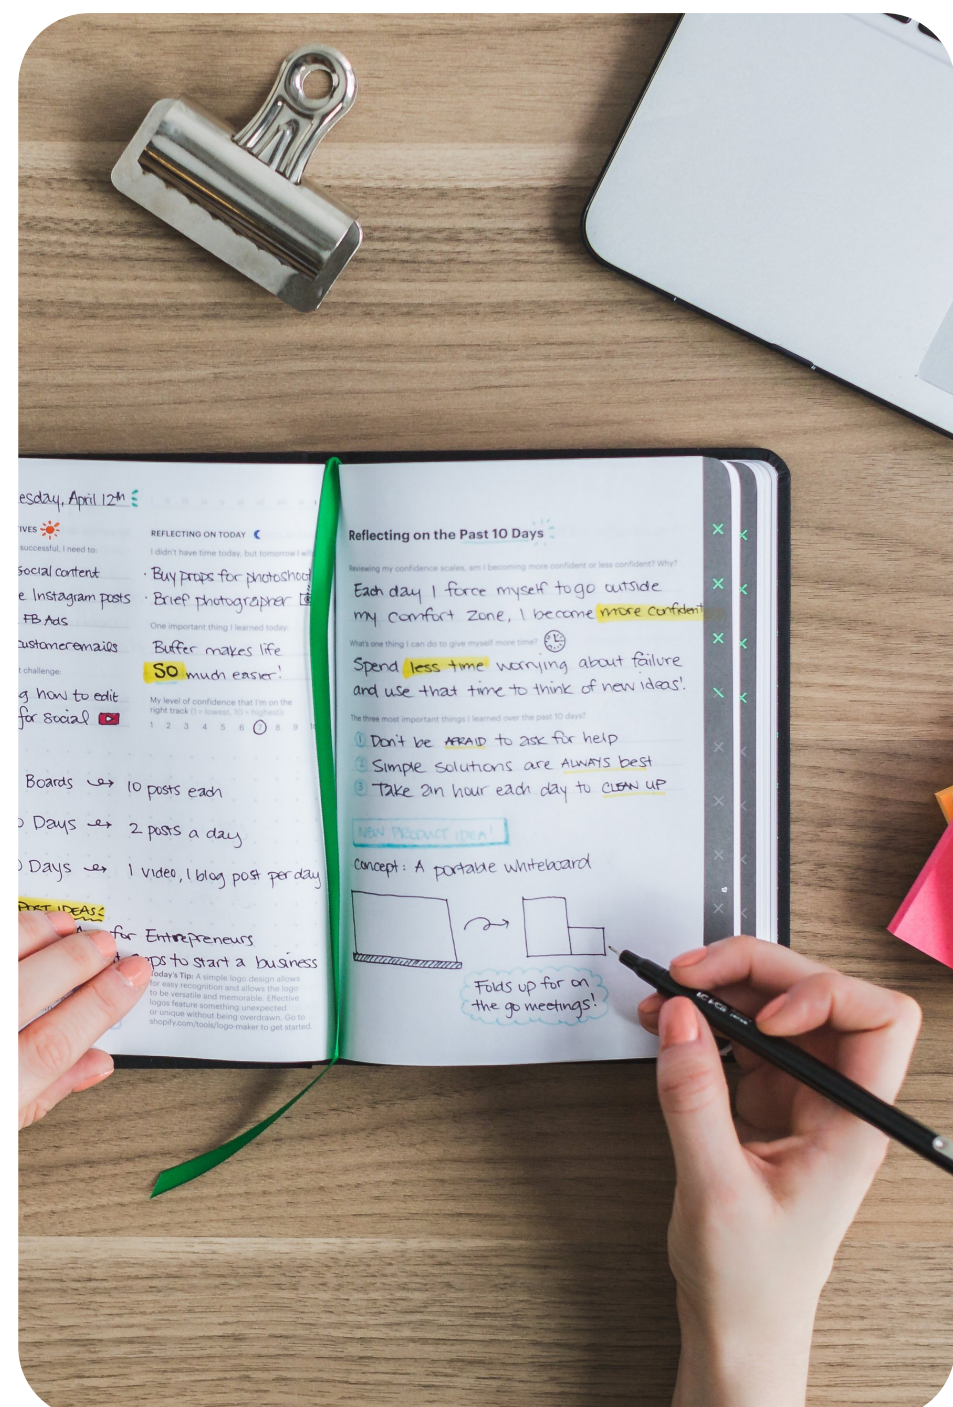 esday, April 12th
IVES
successful, I need to:
social content
e Instagram posts
FB Ads
customer emails
t challenge:
g how to edit
for social
REFLECTING ON TODAY
I didn't have time today, but tomorrow I will
· Buy props for photoshoot
· Brief photographer
One important thing I learned today:
Buffer makes life
SO much easier!
My level of confidence that I'm on the
right track (1 = lowest, 10 = highest):
1 2 3 4 5 6 7 8 9 10
Boards → 10 posts each
Days → 2 posts a day
Days → 1 video, 1 blog post per day
POST IDEAS:
for Entrepreneurs
to start a business
Today's Tip: A simple logo design allows
for easy recognition and allows the logo
to be versatile and memorable. Effective
logos feature something unexpected
or unique without being overdrawn. Go to
shopify.com/tools/logo-maker to get started.
Reflecting on the Past 10 Days
Reviewing my confidence scales, am I becoming more confident or less confident? Why?
Each day I force myself to go outside
my comfort zone, I become more confident
What's one thing I can do to give myself more time?
Spend less time worrying about failure
and use that time to think of new ideas!
The three most important things I learned over the past 10 days?
1 Don't be AFRAID to ask for help
2 Simple solutions are ALWAYS best
3 Take an hour each day to CLEAN UP
NEW PRODUCT IDEA!
Concept: A portable whiteboard
Folds up for on
the go meetings!